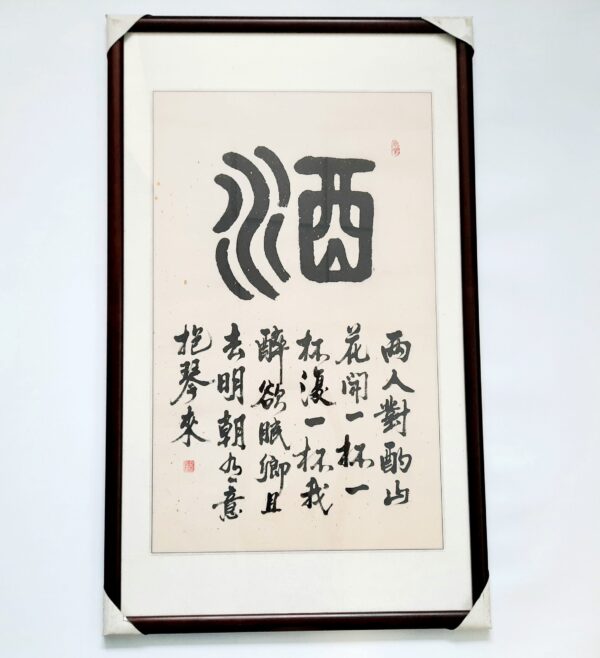 酒
两人對酌山
花開一杯一
杯復一杯我
醉欲眠卿且
去明朝有意
抱琴來